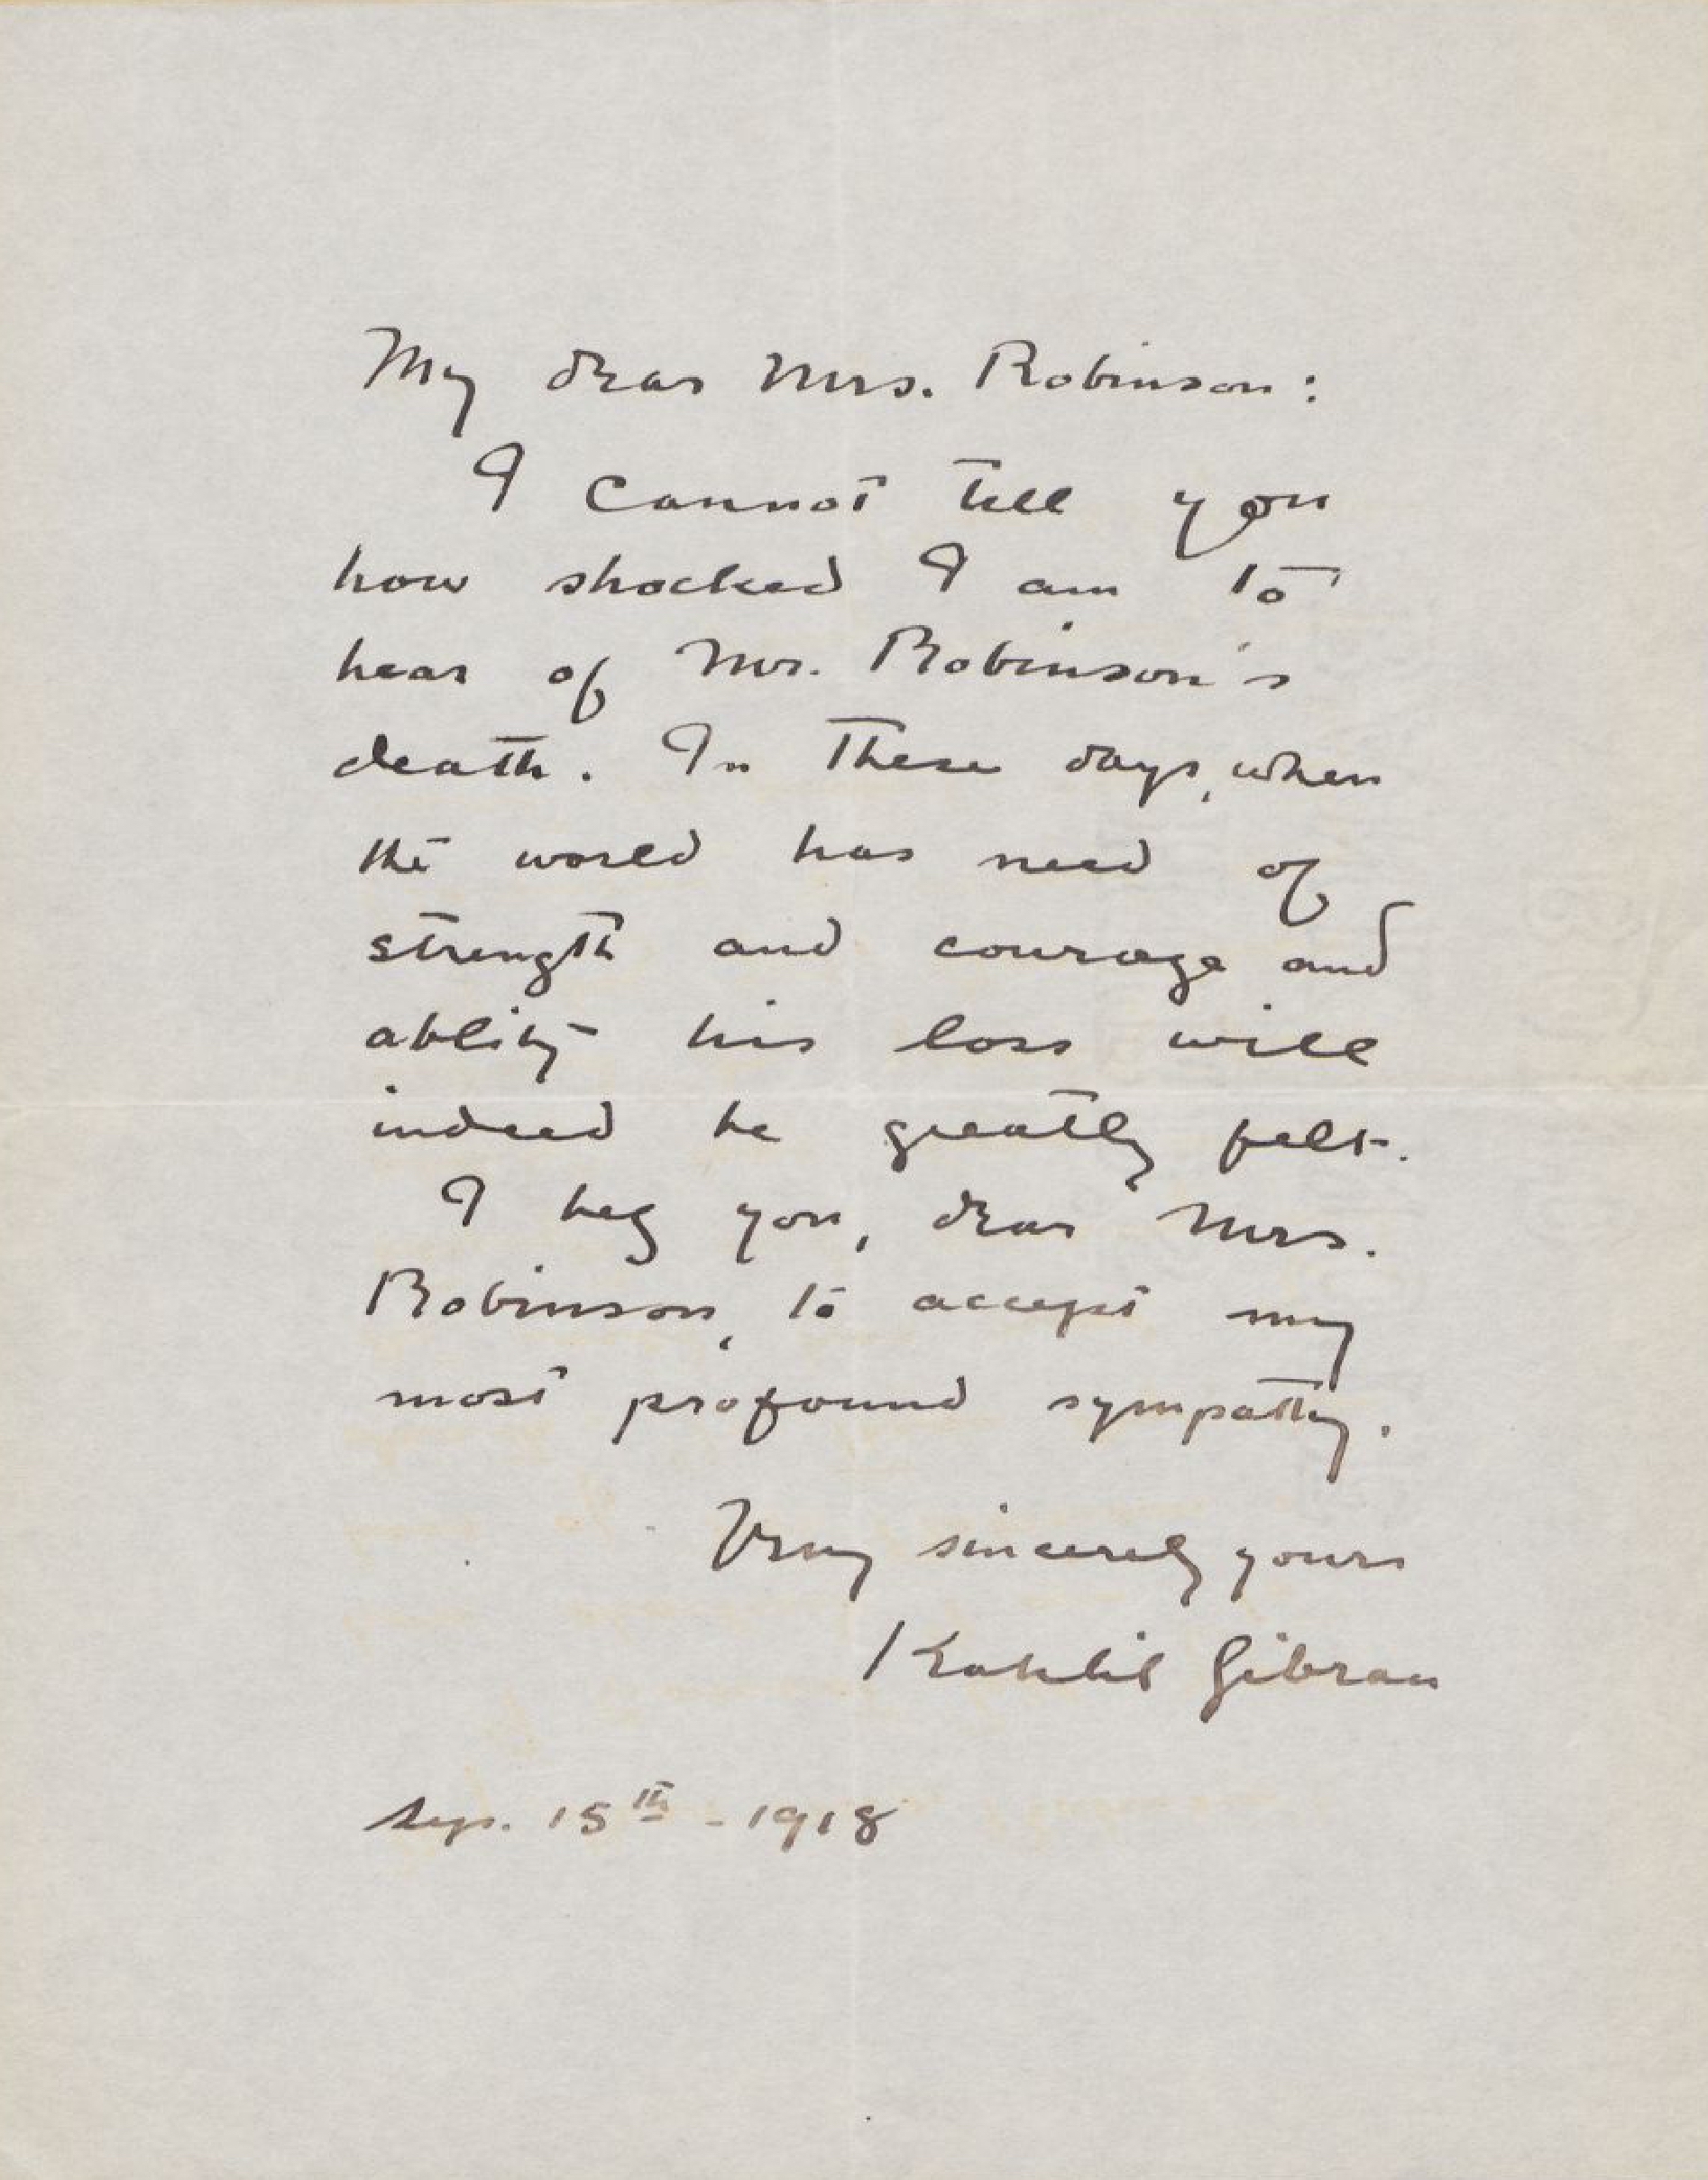 My dear Mrs. Robinson:
I cannot tell you
how shocked I am to
hear of Mr. Robinson's
death. In these days, when
the world has need of
strength and courage and
ablity his loss will
indeed be greatly felt.
I beg you, dear Mrs.
Robinson, to accept my
most profound sympathy.
Very sincerely yours
Kahlil Gibran
Sep. 15th - 1918